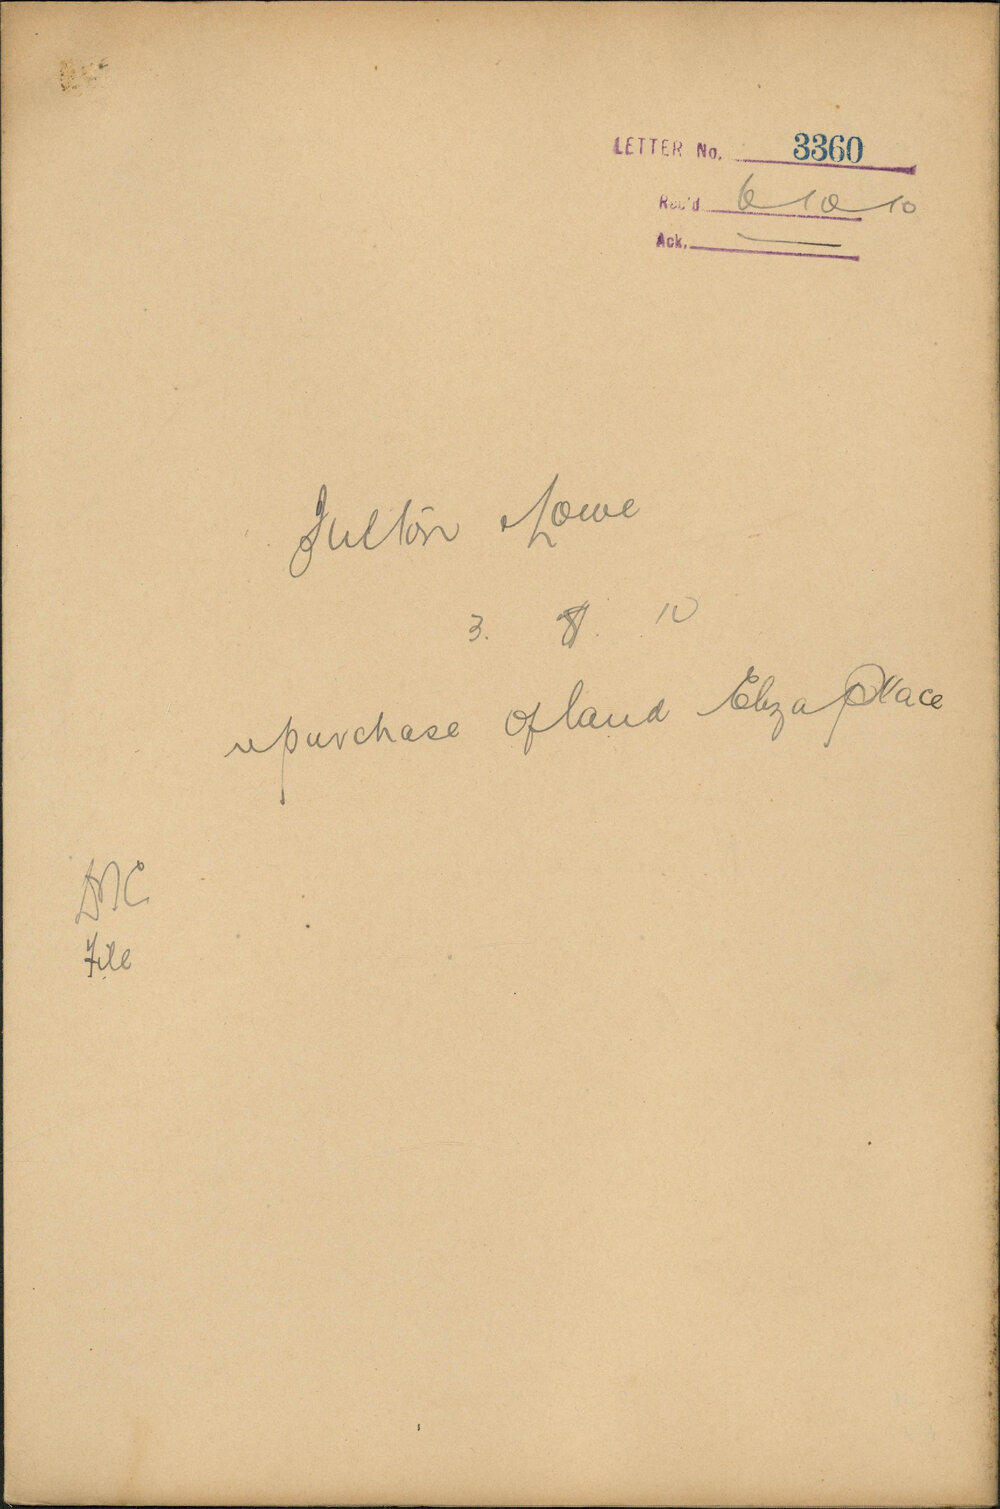 LETTER No. 3360
Rec'd 6-10-10
Ack. —
Fulton Lowe
3. 8. 10
re purchase of land Eliza Place
File